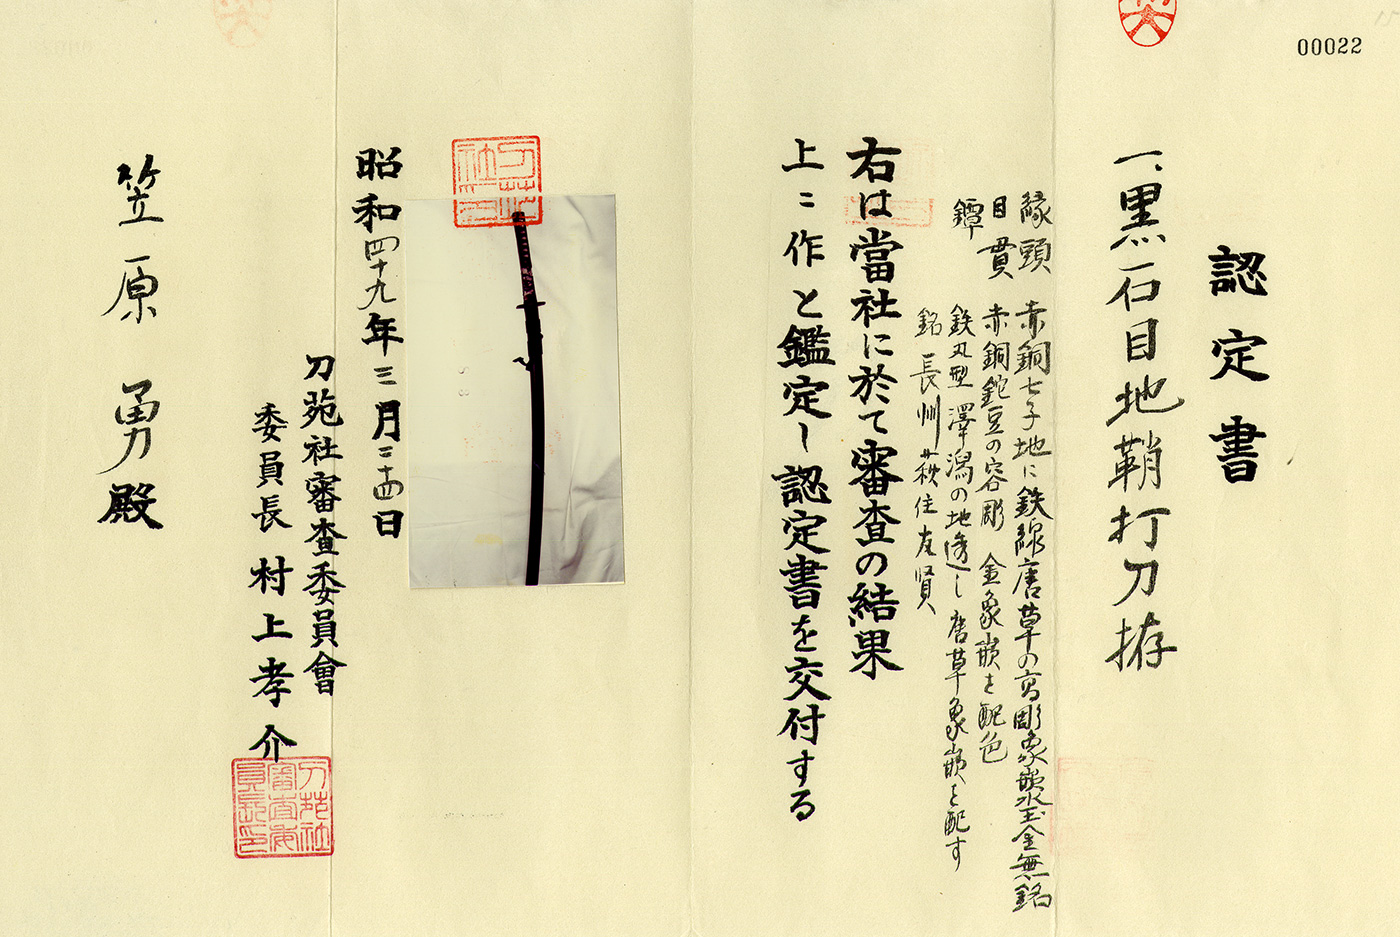 00022
認定書
一、黒石目地鞘打刀拵
縁頭 赤銅七子地に鉄線唐草の高彫象嵌玉金無銘
目貫 赤銅鉈豆の容彫 金象嵌を配色
鐔 鉄丸型澤瀉の地透し唐草象嵌を配す
銘 長州萩住友賢
右は當社に於て審査の結果
上ニ作と鑑定し認定書を交付する
昭和四十九年三月二十四日
刀苑社審査委員會
委員長 村上孝介
刀苑社審査委員長印
笠原 勇殿